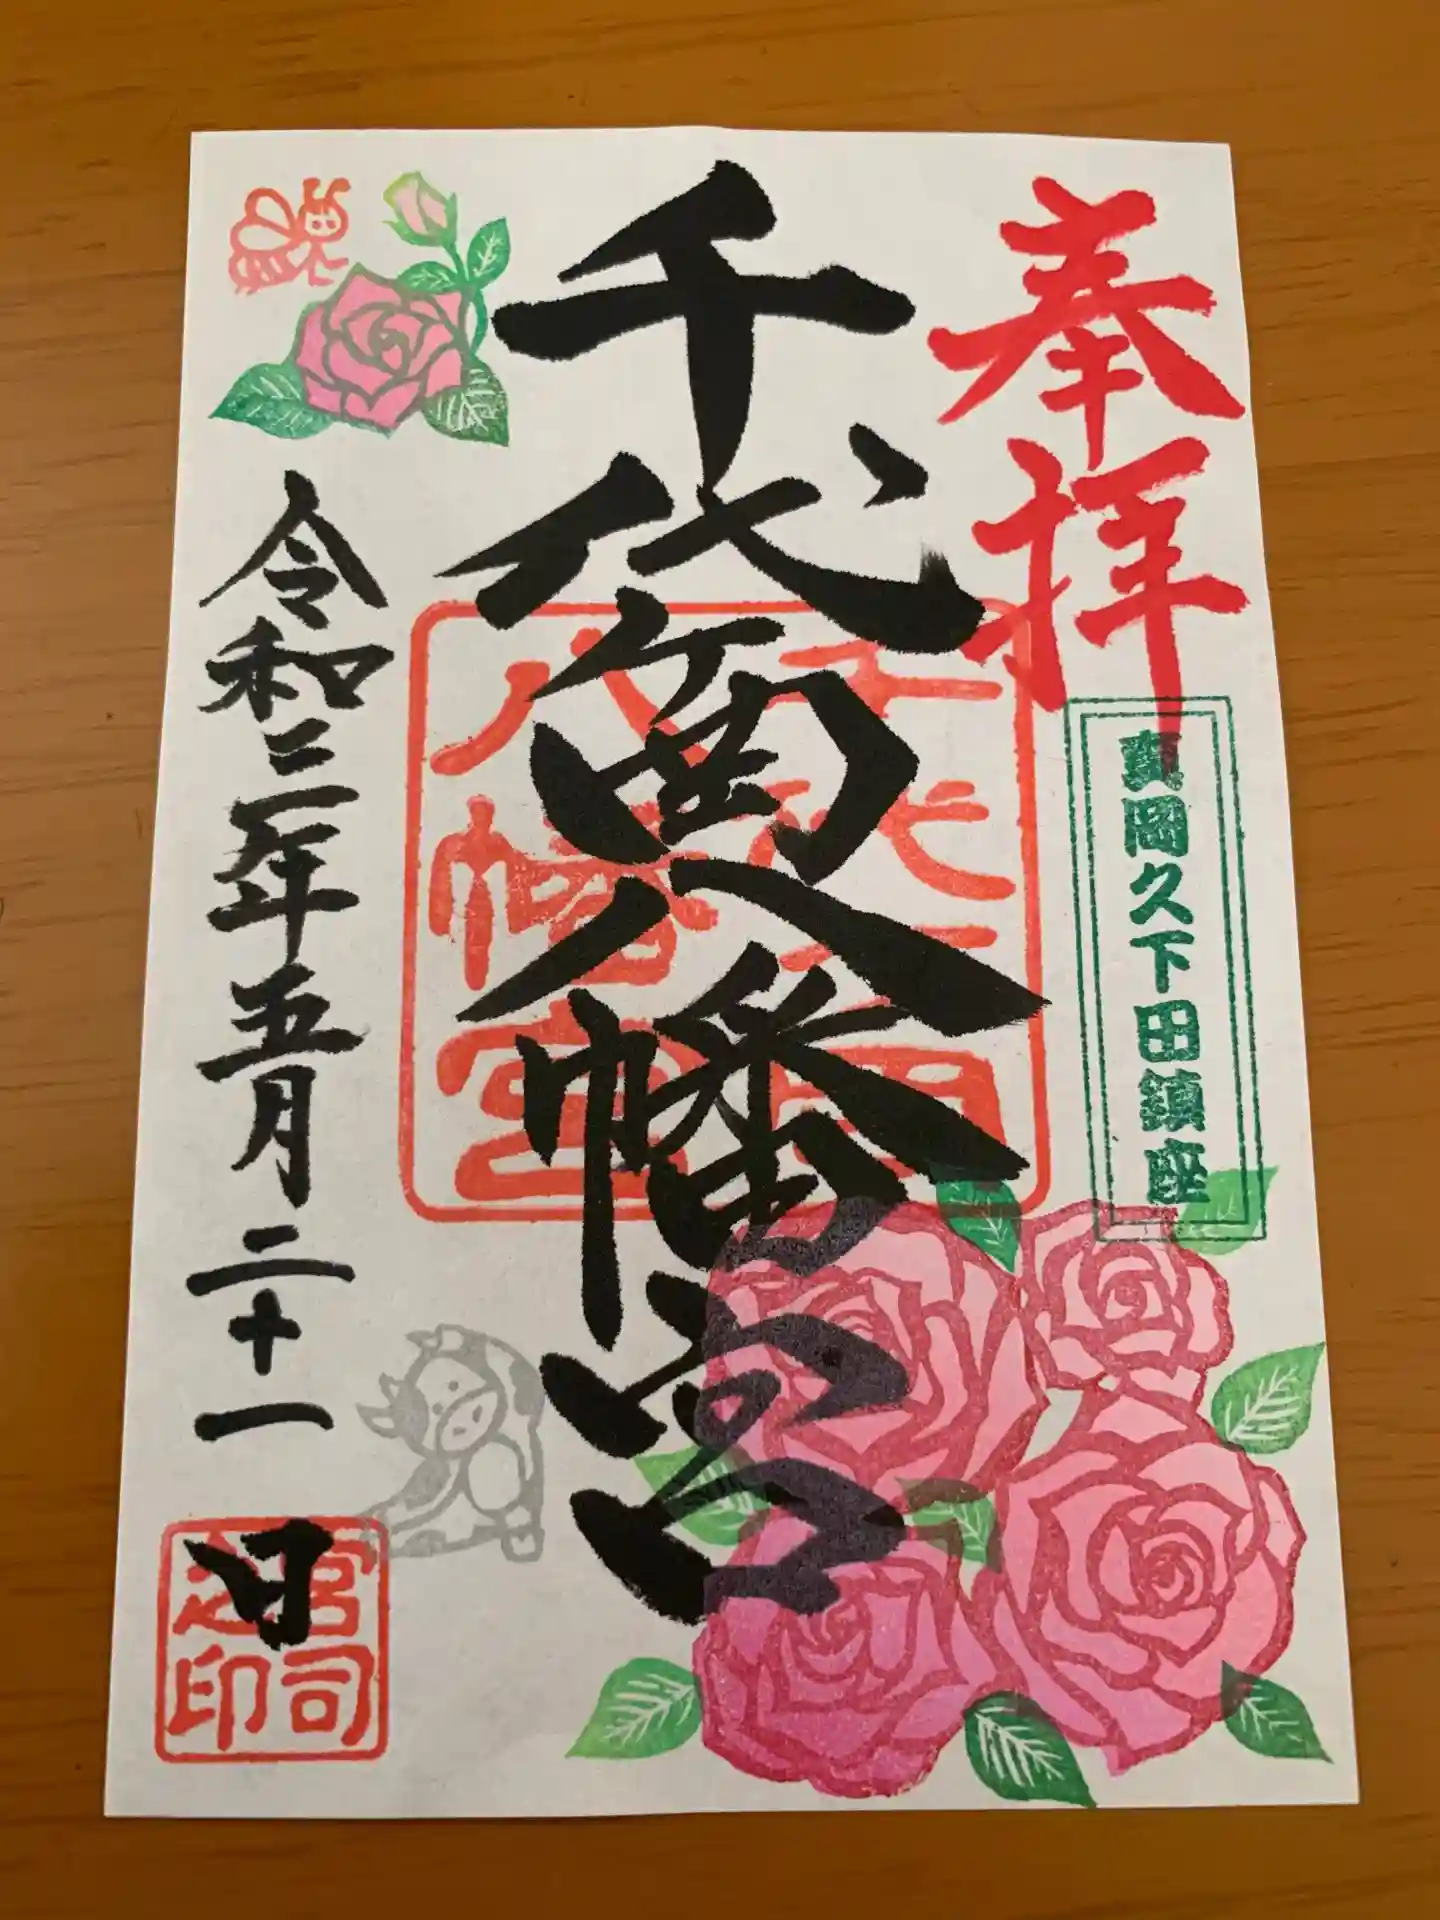 奉拝
真岡久下田鎮座
千代ヶ岡八幡宮
千代ヶ岡
八幡宮
令和三年五月二十一日
宮司
之印